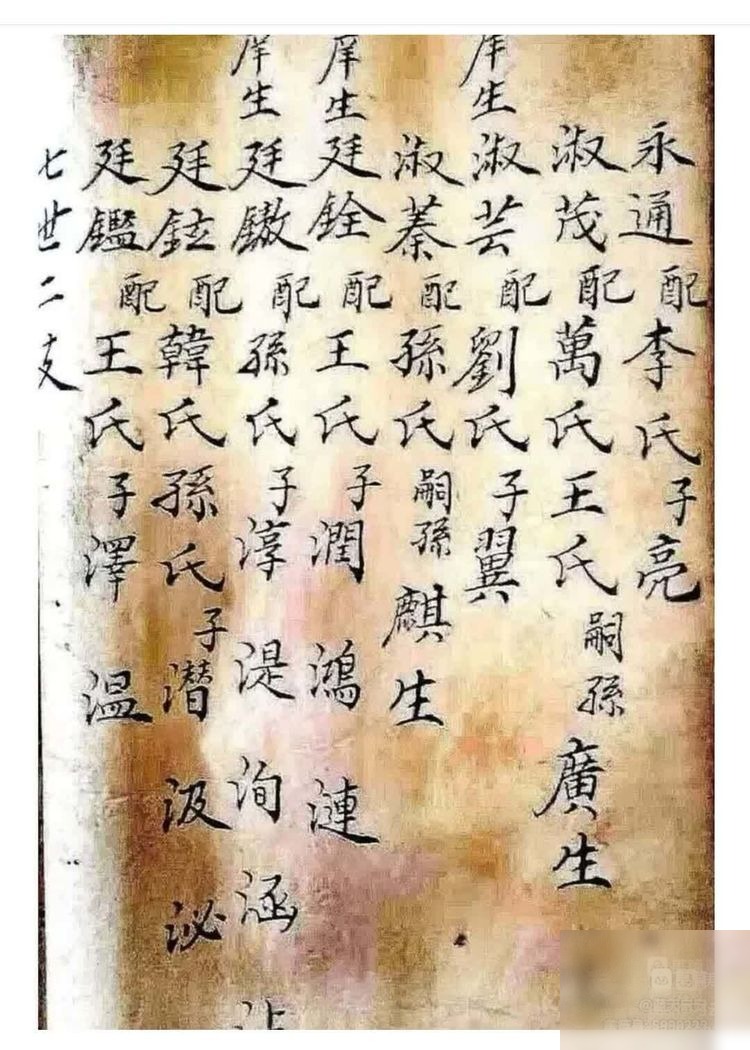 永通配李氏子亮
淑茂配萬氏王氏嗣孫廣生
庠生淑芸配劉氏子翼
淑蓁配孫氏嗣孫麒生
庠生廷銓配王氏子潤鴻漣
庠生廷鏾配孫氏子淳湜洵涵
廷鉉配韓氏孫氏子潛汲泌
廷鑑配王氏子澤溫
七世二支